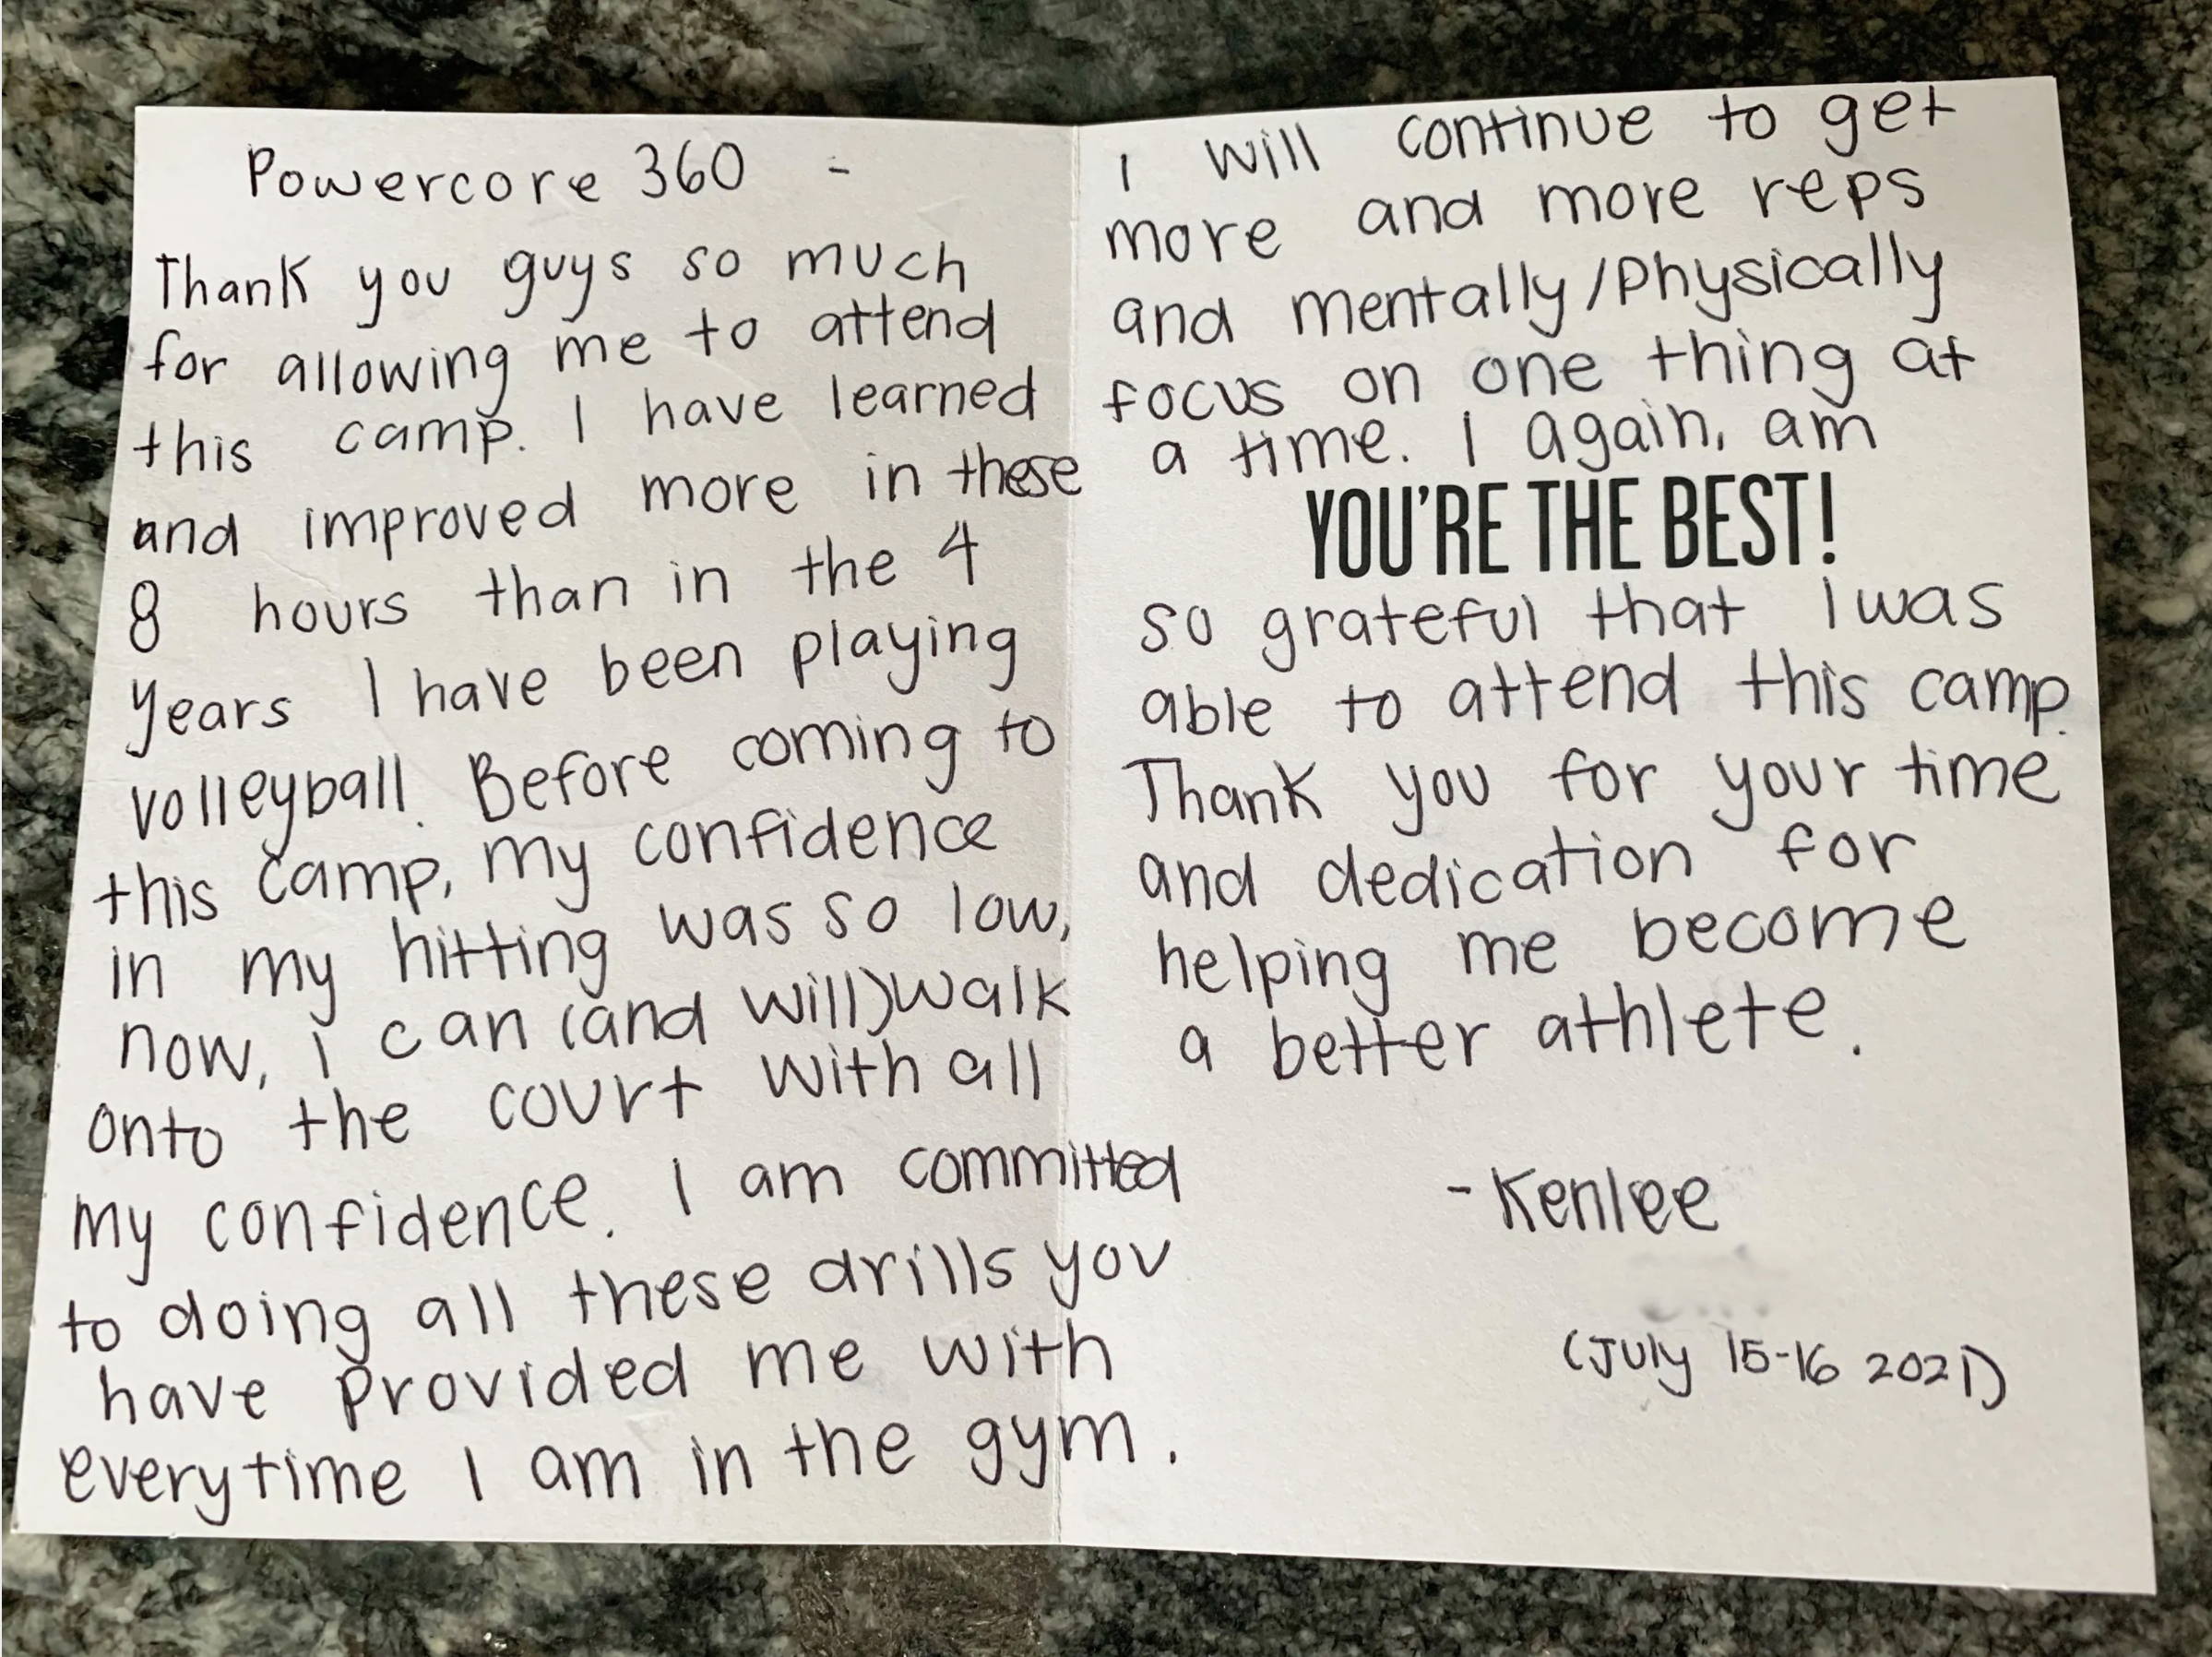 Powercore 360 -
Thank you guys so much
for allowing me to attend
this camp. I have learned
and improved more in these
8 hours than in the 4
years I have been playing
volleyball. Before coming to
this camp, my confidence
in my hitting was so low,
now, i can (and will) walk
onto the court with all
my confidence. I am committed
to doing all these drills you
have provided me with
everytime I am in the gym.
I will continue to get
more and more reps
and mentally/Physically
focus on one thing at
a time. I again, am
YOU'RE THE BEST!
so grateful that i was
able to attend this camp.
Thank you for your time
and dedication for
helping me become
a better athlete.
- Kenlee
(July 15-16 2021)